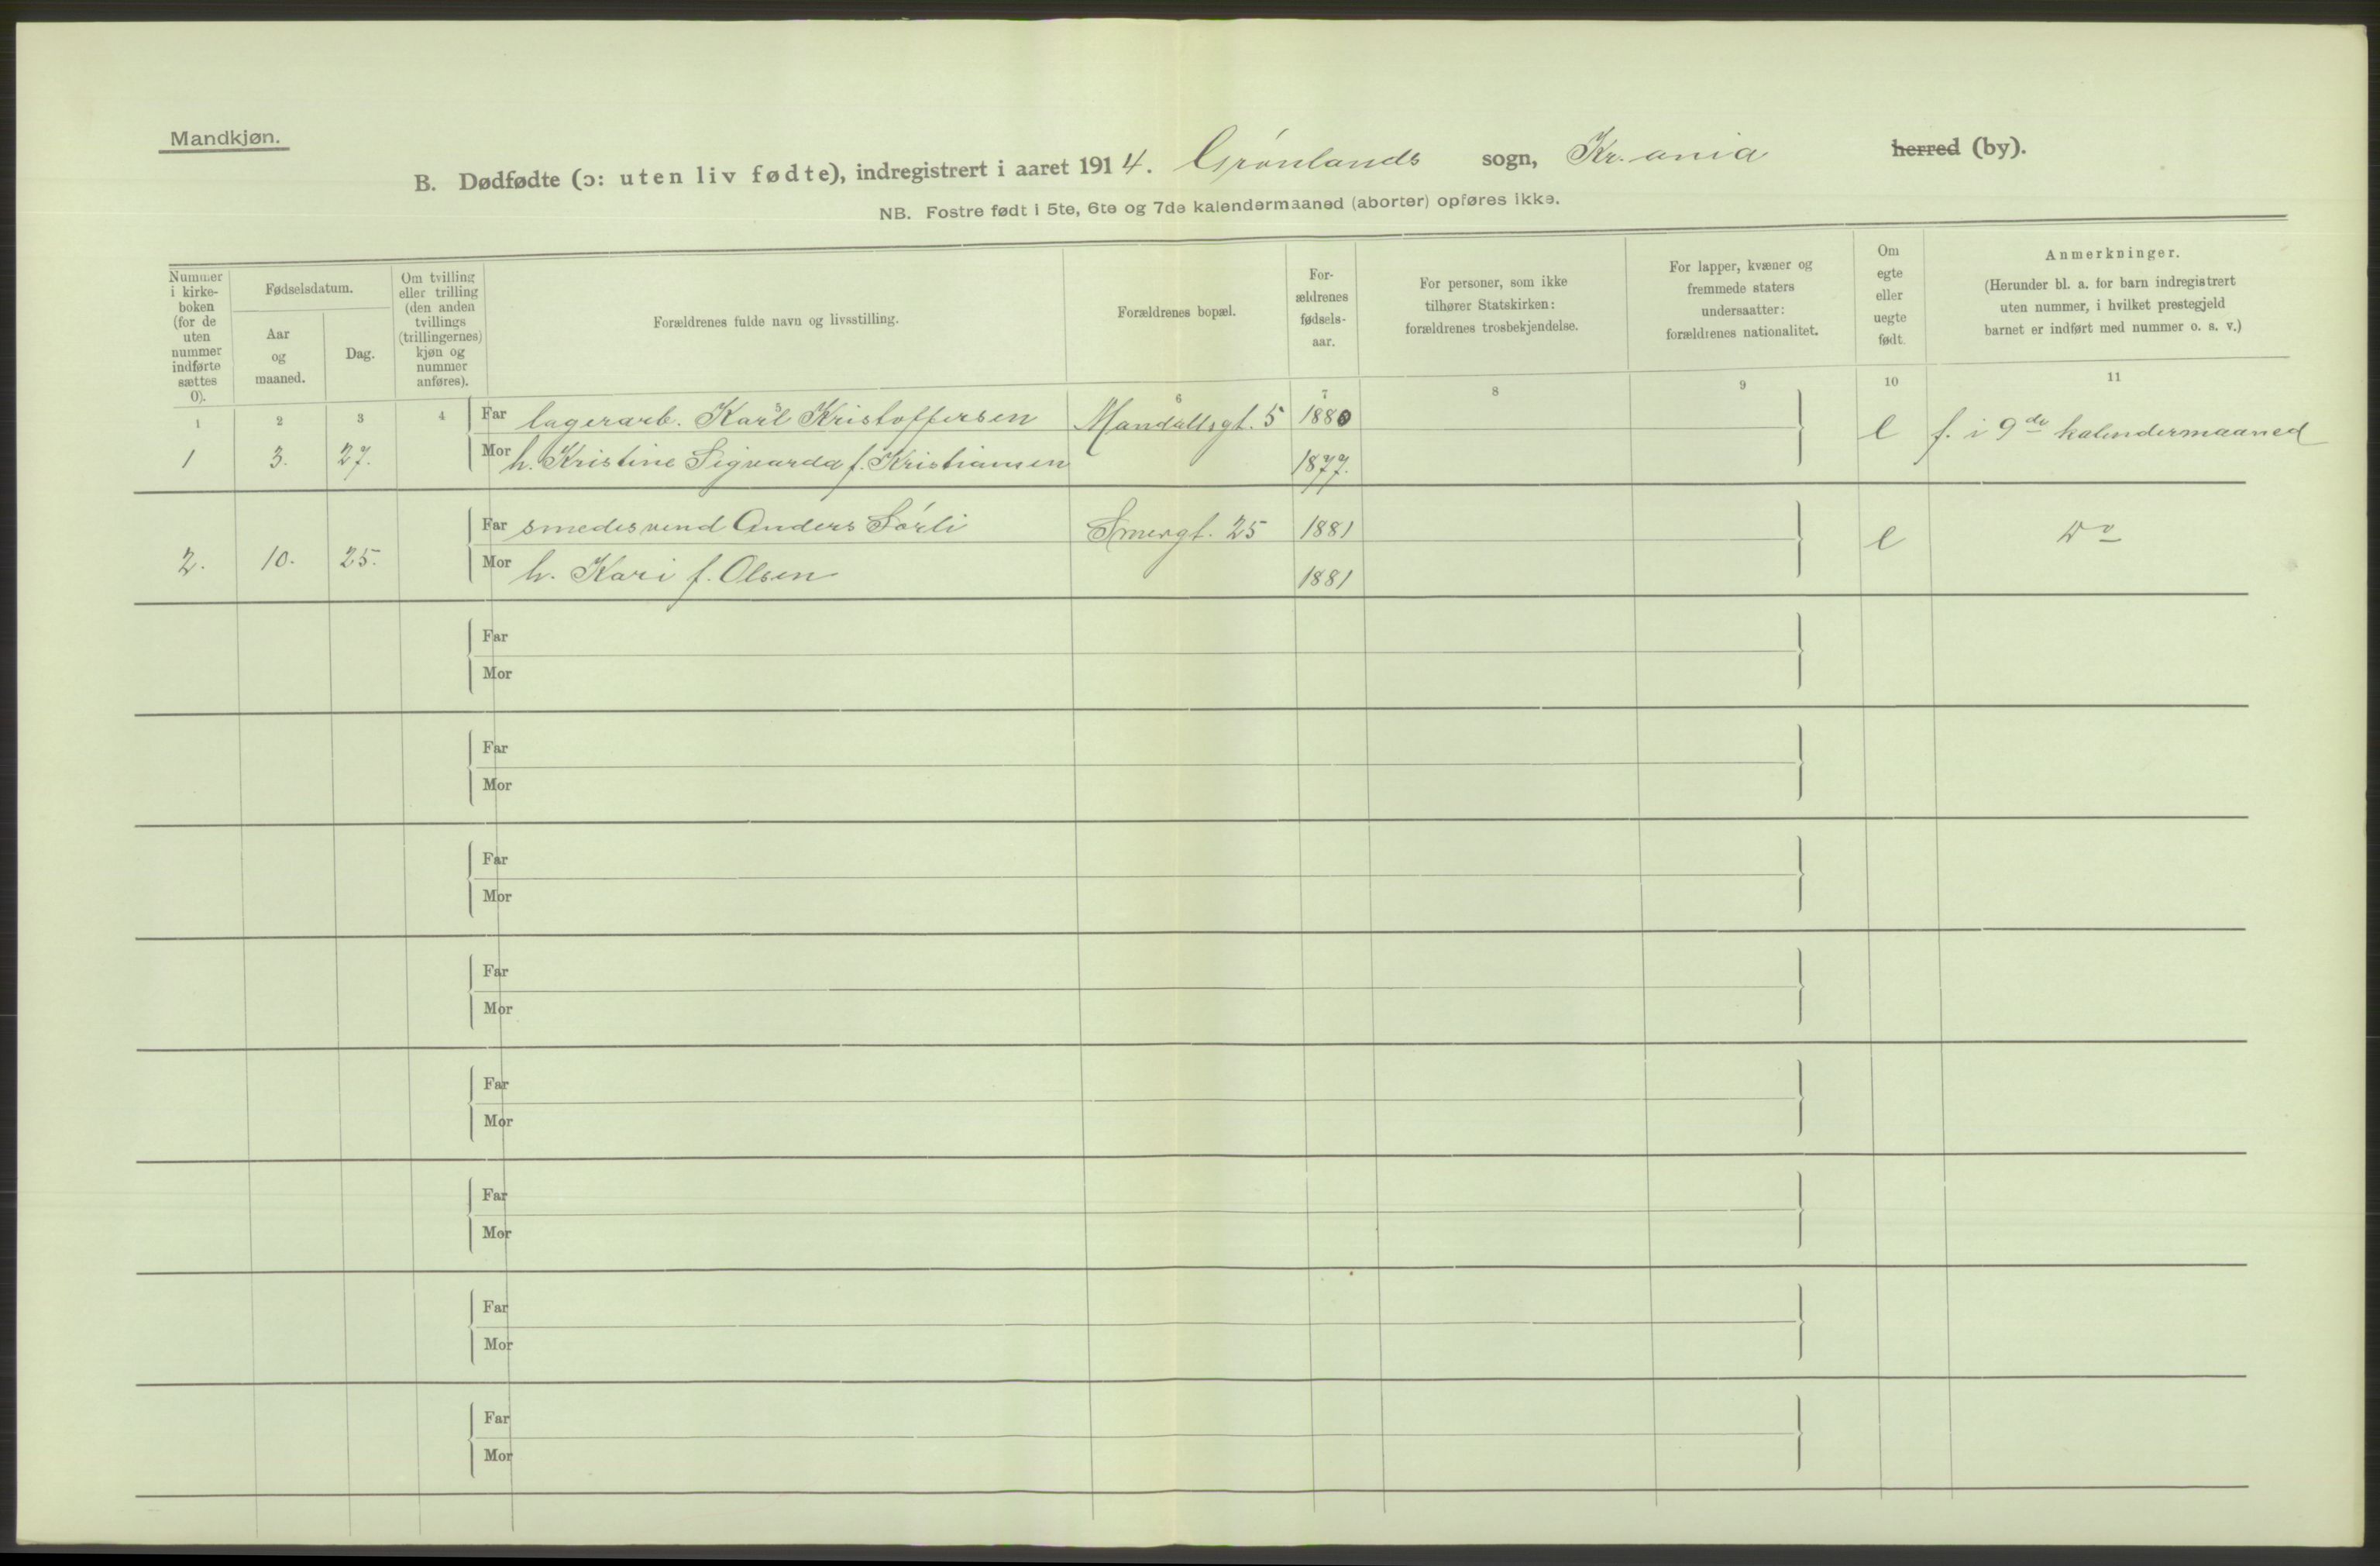 Mandkjøn.
B. Dødfødte (ɔ: uten liv fødte), indregistrert i aaret 1914. Grønlands sogn, Kr.ania herred (by).
NB. Fostre født i 5te, 6te og 7de kalendermaaned (aborter) opføres ikke.
Nummer
i kirke-
boken
(for de
uten
nummer
indførte
sættes
0).
Fødselsdatum.
Aar
og
maaned.
Dag.
Om tvilling
eller trilling
(den anden
tvillings
(trillingernes)
kjøn og
nummer
anføres).
Forældrenes fulde navn og livsstilling.
Forældrenes bopæl.
For-
ældrenes
fødsels-
aar.
For personer, som ikke
tilhører Statskirken:
forældrenes trosbekjendelse.
For lapper, kvæner og
fremmede staters
undersaatter:
forældrenes nationalitet.
Om
egte
eller
uegte
født.
Anmerkninger.
(Herunder bl. a. for barn indregistrert
uten nummer, i hvilket prestegjeld
barnet er indført med nummer o. s. v.)
1 2 3 4 5 6 7 8 9 10 11
Far lagerarb. Karl Kristoffersen Mandalsgt. 5 1880
1 3. 27. Mor h. Kristine Sigvarda f. Kristiansen 1877. e f. i 9de kalendermaaned
Far smedesvend Anders Sørli Smergt. 25 1881
2. 10. 25. Mor h. Kari f. Olsen 1881 e Do
Far
Mor
Far
Mor
Far
Mor
Far
Mor
Far
Mor
Far
Mor
Far
Mor
Far
Mor